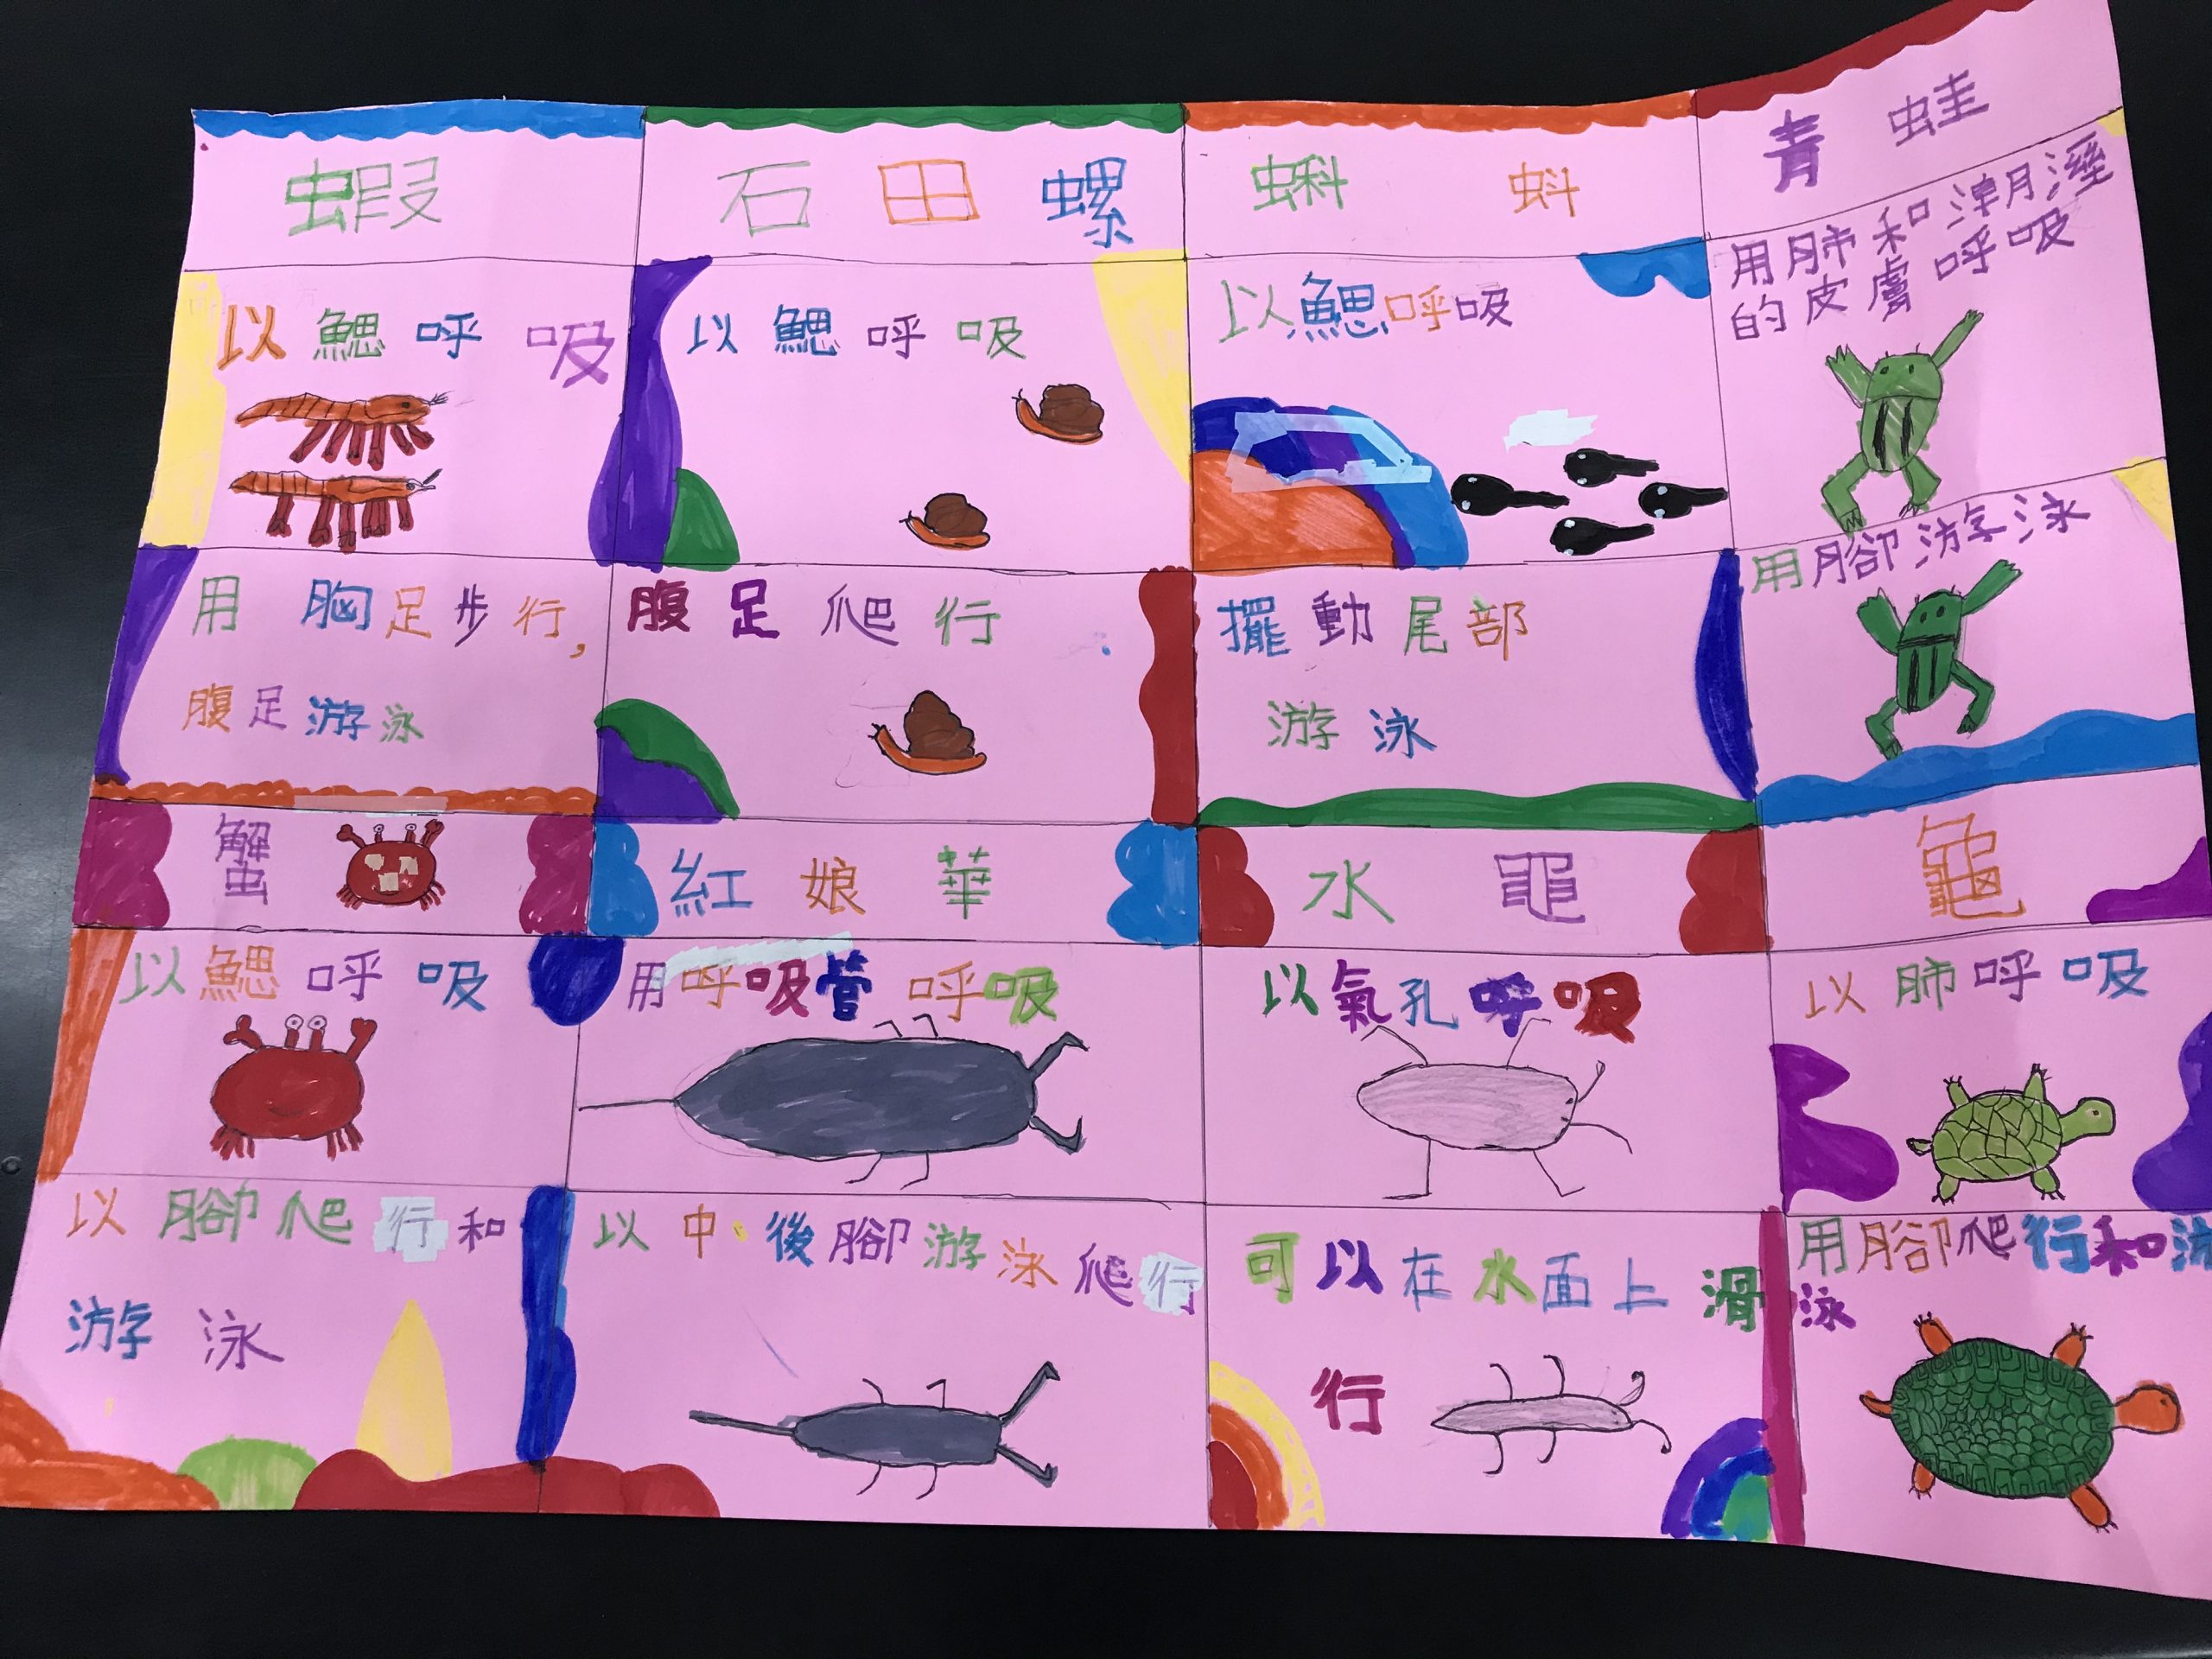 蝦
石田螺
蝌蚪
青蛙
以鰓呼吸
以鰓呼吸
以鰓呼吸
用肺和潮溼
的皮膚呼吸
用胸足步行,
腹足游泳
腹足爬行
擺動尾部
游泳
用腳游泳
蟹
紅娘華
水黽
龜
以鰓呼吸
用呼吸管呼吸
以氣孔呼吸
以肺呼吸
以腳爬行和
游泳
以中、後腳游泳爬行
可以在水面上滑
行
用腳爬行和游
泳